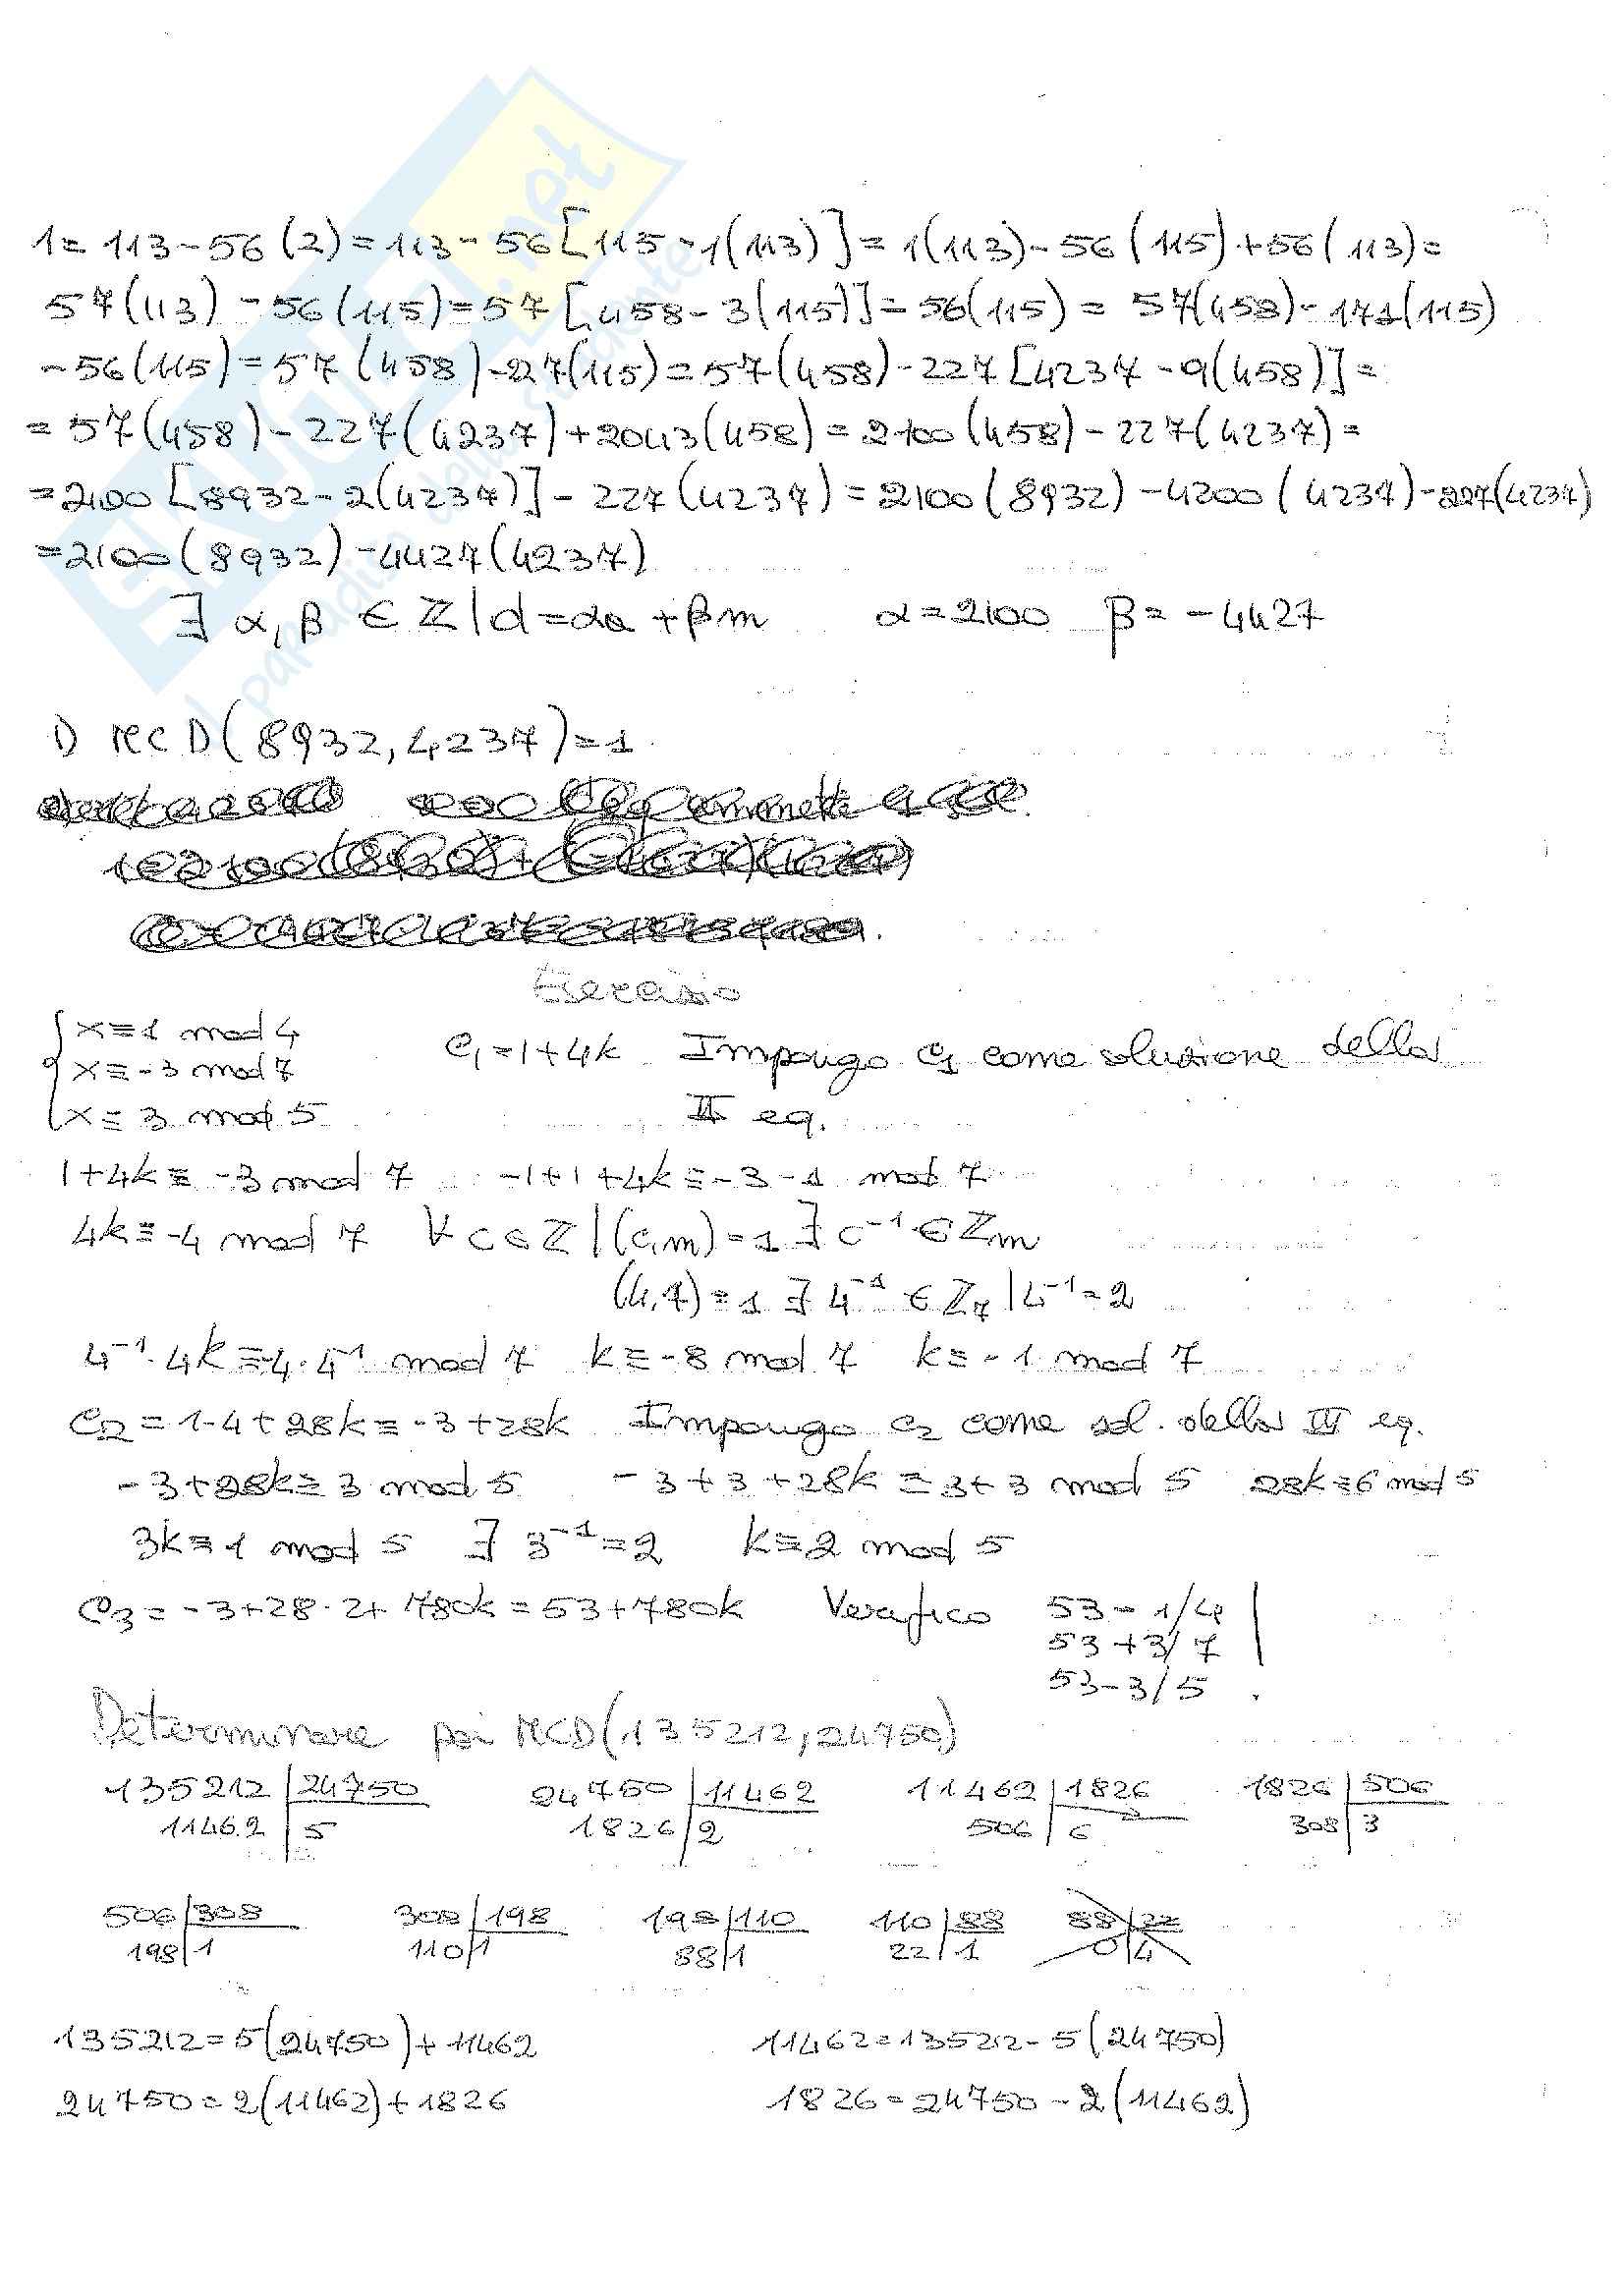 1 = 113 - 56 (2) = 113 - 56 [115 - 1(113)] = 1(113) - 56 (115) + 56 (113) =
57(113) - 56(115) = 57 [458 - 3(115)] = 56(115) = 57(458) - 171(115)
- 56(115) = 57 (458) - 27(115) = 57(458) - 227 [4237 - 9(458)] =
= 57(458) - 227(4237) + 2043(458) = 2100(458) - 227(4237) =
= 2100 [8932 - 2(4237)] - 227(4237) = 2100(8932) - 4200(4237) - 227(4237)
= 2100(8932) - 4427(4237)
∃ α, β ∈ ℤ | d = αa + βm α = 2100 β = -4427
D MCD(8932, 4237) = 1
ammette
Esercizio
{ x ≡ 1 mod 4
x ≡ -3 mod 7
x ≡ 3 mod 5
C₁ = 1 + 4k Impongo C₁ come soluzione della
II eq.
1 + 4k ≡ -3 mod 7 -1 + 1 + 4k ≡ -3 - 1 mod 7
4k ≡ -4 mod 7 ∀ c ∈ ℤ | (c, m) = 1 ∃ c⁻¹ ∈ ℤm
(4, 7) = 1 ∃ 4⁻¹ ∈ ℤ₇ | 4⁻¹ = 2
4⁻¹ · 4k ≡ -4 · 4⁻¹ mod 7 k ≡ -8 mod 7 k ≡ -1 mod 7
C₂ = 1 - 4 + 28k ≡ -3 + 28k Impongo C₂ come sol. della III eq.
-3 + 28k ≡ 3 mod 5 -3 + 3 + 28k ≡ 3 + 3 mod 5 28k ≡ 6 mod 5
3k ≡ 1 mod 5 ∃ 3⁻¹ = 2 k ≡ 2 mod 5
C₃ = -3 + 28 · 2 + 780k = 53 + 780k Verifico 53 - 1/4
53 + 3/7
53 - 3/5
Determinare poi MCD(135212, 24750)
135212 | 24750 24750 | 11462 11462 | 1826 1826 | 506
11462 | 5 1826 | 2 506 | 6 308 | 3
506 | 308 308 | 198 198 | 110 110 | 88 88 | 22
198 | 1 110 | 1 88 | 1 22 | 1 0 | 4
135212 = 5(24750) + 11462 11462 = 135212 - 5(24750)
24750 = 2(11462) + 1826 1826 = 24750 - 2(11462)